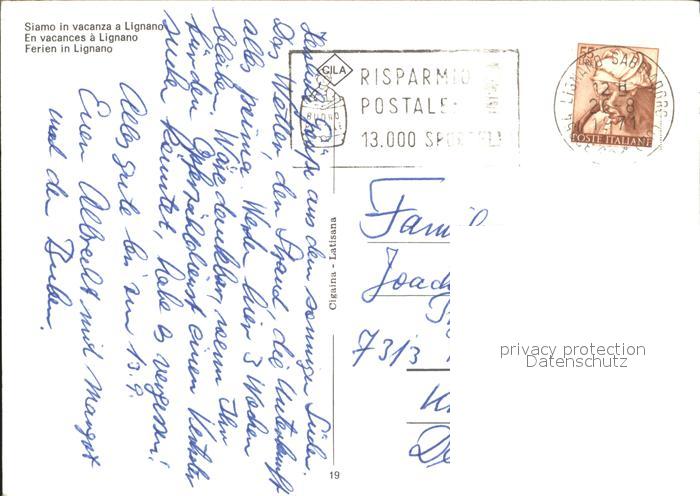 Siamo in vacanza a Lignano
En vacances à Lignano
Ferien in Lignano
GILA
BUONO
RISPARMIO
POSTALE:
13.000 SPORTELLI
55
LIGNANO SABBIADORO
12
26-8
71
POSTE ITALIANE
Grüße aus dem sonnigen Süden.
Das Wetter, der Strand, die Unterkunft
alles prima. Werden hier 3 Wochen
bleiben. Wäre denkbar, wenn Ihr
für den einen Vertreter
suchen könntet, habe es vergessen!
Alles Gute bis zum 13.9.
Euer Albrecht mit Margot
und den Buben.
Cigaina - Latisana
19
Famil
Joach
7313
privacy protection
Datenschutz